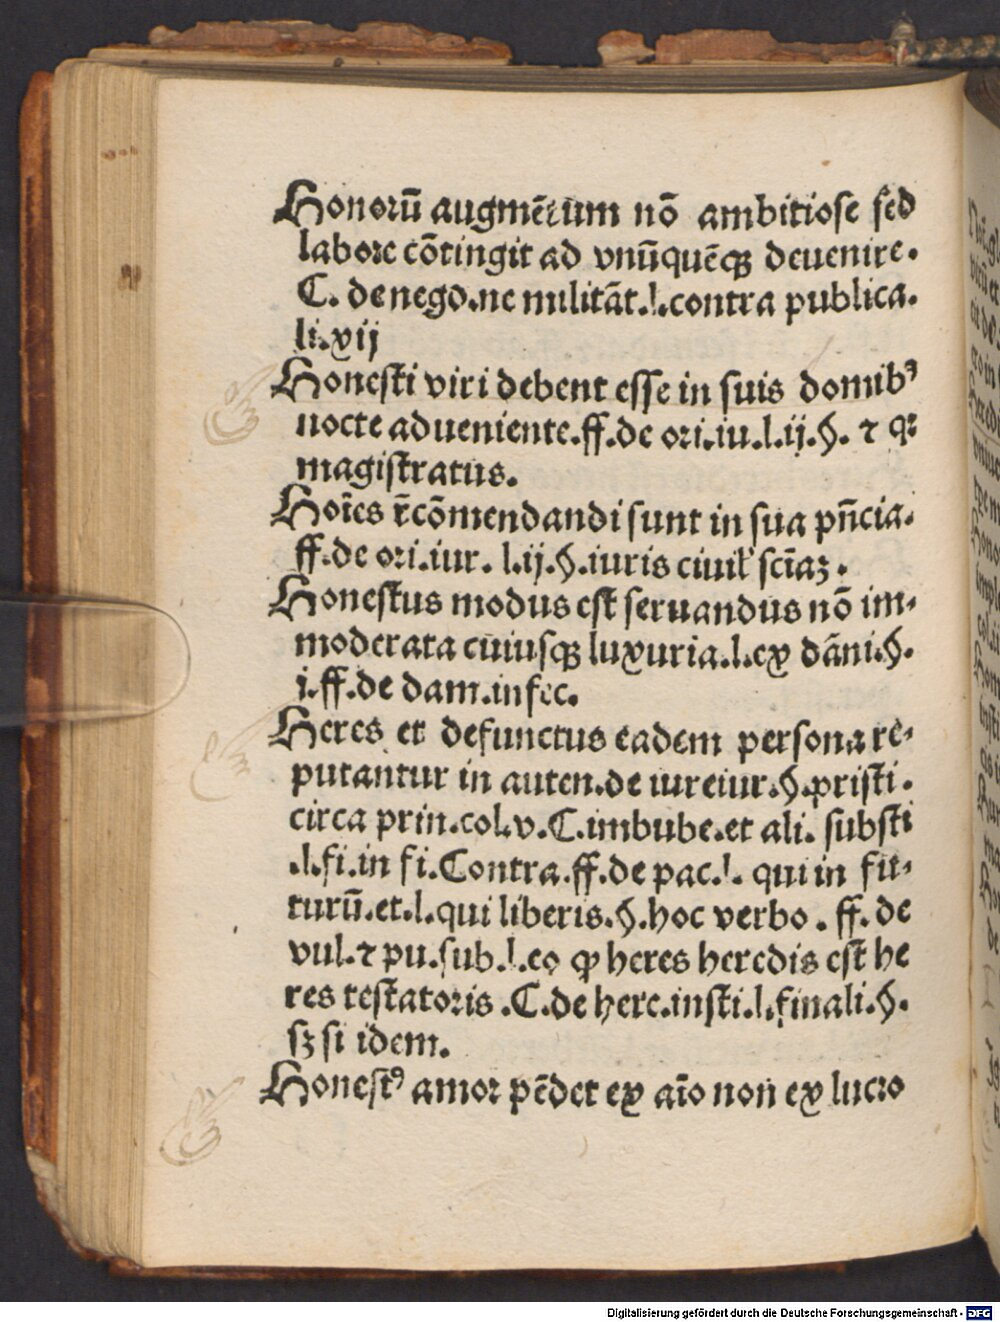 Honorū augmētum nō ambitiose sed
labore cōtingit ad vnūquēqꝫ deuenire.
C. de nego.ne militāt.l.contra publica.
li.xij
Honesti viri debent esse in suis domibꝰ
nocte adueniente.ff.de ori.iu.l.ij.§. ⁊ qꝛ
magistratus.
Hoīes r̄cōmendandi sunt in sua pn̄cia.
ff.de ori.iur. l.ij.§.iuris ciuil' scīaꝫ.
Honestus modus est seruandus nō im-
moderata cuiusqꝫ luxuria.l.ex dāni.§.
j.ff.de dam.infec.
Heres et defunctus eadem persona re-
putantur in auten.de iureiur.§.pristi.
circa prin.col.v.C.impube.et ali. substi
.l.fi.in fi.Contra.ff.de pac.l. qui in fu-
turū.et.l.qui liberis.§.hoc verbo. ff. de
vul.⁊ pu.sub.l.eo ꝙ heres heredis est he
res testatoris .C.de here.insti.l.finali.§.
sꝫ si idem.
Honestꝰ amor pēdet ex aīo non ex lucro
Digitalisierung gefördert durch die Deutsche Forschungsgemeinschaft - DFG